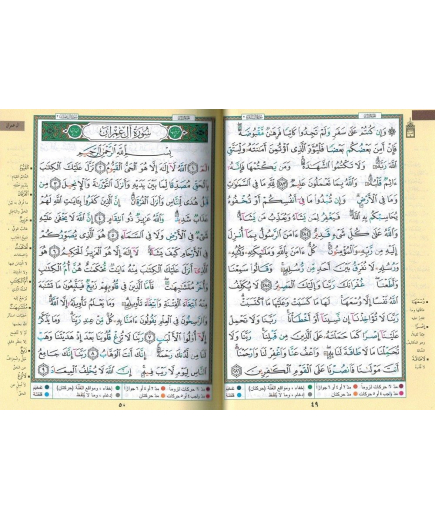 ۞ وَإِن كُنتُمْ عَلَىٰ سَفَرٍ وَلَمْ تَجِدُوا۟ كَاتِبًا فَرِهَٰنٌ مَّقْبُوضَةٌ
فَإِنْ أَمِنَ بَعْضُكُم بَعْضًا فَلْيُؤَدِّ ٱلَّذِى ٱؤْتُمِنَ أَمَٰنَتَهُۥ وَلْيَتَّقِ
ٱللَّهَ رَبَّهُۥ وَلَا تَكْتُمُوا۟ ٱلشَّهَٰدَةَ وَمَن يَكْتُمْهَا فَإِنَّهُۥٓ
ءَاثِمٌ قَلْبُهُۥ وَٱللَّهُ بِمَا تَعْمَلُونَ عَلِيمٌ ٢٨٣ لِّلَّهِ مَا فِى ٱلسَّمَٰوَٰتِ
وَمَا فِى ٱلْأَرْضِ وَإِن تُبْدُوا۟ مَا فِىٓ أَنفُسِكُمْ أَوْ تُخْفُوهُ
يُحَاسِبْكُم بِهِ ٱللَّهُ فَيَغْفِرُ لِمَن يَشَآءُ وَيُعَذِّبُ مَن يَشَآءُ
وَٱللَّهُ عَلَىٰ كُلِّ شَىْءٍ قَدِيرٌ ٢٨٤ ءَامَنَ ٱلرَّسُولُ بِمَآ أُنزِلَ
إِلَيْهِ مِن رَّبِّهِۦ وَٱلْمُؤْمِنُونَ كُلٌّ ءَامَنَ بِٱللَّهِ وَمَلَٰٓئِكَتِهِۦ وَكُتُبِهِۦ
وَرُسُلِهِۦ لَا نُفَرِّقُ بَيْنَ أَحَدٍ مِّن رُّسُلِهِۦ وَقَالُوا۟ سَمِعْنَا
وَأَطَعْنَا غُفْرَانَكَ رَبَّنَا وَإِلَيْكَ ٱلْمَصِيرُ ٢٨٥ لَا يُكَلِّفُ
ٱللَّهُ نَفْسًا إِلَّا وُسْعَهَا لَهَا مَا كَسَبَتْ وَعَلَيْهَا مَا ٱكْتَسَبَتْ
رَبَّنَا لَا تُؤَاخِذْنَآ إِن نَّسِينَآ أَوْ أَخْطَأْنَا رَبَّنَا وَلَا تَحْمِلْ
عَلَيْنَآ إِصْرًا كَمَا حَمَلْتَهُۥ عَلَى ٱلَّذِينَ مِن قَبْلِنَا رَبَّنَا وَلَا
تُحَمِّلْنَا مَا لَا طَاقَةَ لَنَا بِهِۦ وَٱعْفُ عَنَّا وَٱغْفِرْ لَنَا وَٱرْحَمْنَآ
أَنتَ مَوْلَىٰنَا فَٱنصُرْنَا عَلَى ٱلْقَوْمِ ٱلْكَٰفِرِينَ ٢٨٦
٤٩
سُورَةُ آلِ عِمْرَانَ
بِسْمِ ٱللَّهِ ٱلرَّحْمَٰنِ ٱلرَّحِيمِ
الٓمٓ ١ ٱللَّهُ لَآ إِلَٰهَ إِلَّا هُوَ ٱلْحَىُّ ٱلْقَيُّومُ ٢ نَزَّلَ عَلَيْكَ ٱلْكِتَٰبَ
بِٱلْحَقِّ مُصَدِّقًا لِّمَا بَيْنَ يَدَيْهِ وَأَنزَلَ ٱلتَّوْرَىٰةَ وَٱلْإِنجِيلَ ٣
مِن قَبْلُ هُدًى لِّلنَّاسِ وَأَنزَلَ ٱلْفُرْقَانَ إِنَّ ٱلَّذِينَ كَفَرُوا۟ بِـَٔايَٰتِ ٱللَّهِ لَهُمْ
عَذَابٌ شَدِيدٌ وَٱللَّهُ عَزِيزٌ ذُو ٱنتِقَامٍ ٤ إِنَّ ٱللَّهَ لَا يَخْفَىٰ عَلَيْهِ
شَىْءٌ فِى ٱلْأَرْضِ وَلَا فِى ٱلسَّمَآءِ ٥ هُوَ ٱلَّذِى يُصَوِّرُكُمْ
فِى ٱلْأَرْحَامِ كَيْفَ يَشَآءُ لَآ إِلَٰهَ إِلَّا هُوَ ٱلْعَزِيزُ ٱلْحَكِيمُ ٦ هُوَ
ٱلَّذِىٓ أَنزَلَ عَلَيْكَ ٱلْكِتَٰبَ مِنْهُ ءَايَٰتٌ مُّحْكَمَٰتٌ هُنَّ أُمُّ ٱلْكِتَٰبِ
وَأُخَرُ مُتَشَٰبِهَٰتٌ فَأَمَّا ٱلَّذِينَ فِى قُلُوبِهِمْ زَيْغٌ فَيَتَّبِعُونَ مَا تَشَٰبَهَ
مِنْهُ ٱبْتِغَآءَ ٱلْفِتْنَةِ وَٱبْتِغَآءَ تَأْوِيلِهِۦ وَمَا يَعْلَمُ تَأْوِيلَهُۥٓ إِلَّا ٱللَّهُ
وَٱلرَّٰسِخُونَ فِى ٱلْعِلْمِ يَقُولُونَ ءَامَنَّا بِهِۦ كُلٌّ مِّنْ عِندِ رَبِّنَا وَمَا يَذَّكَّرُ
إِلَّآ أُو۟لُوا۟ ٱلْأَلْبَٰبِ ٧ رَبَّنَا لَا تُزِغْ قُلُوبَنَا بَعْدَ إِذْ هَدَيْتَنَا وَهَبْ
لَنَا مِن لَّدُنكَ رَحْمَةً إِنَّكَ أَنتَ ٱلْوَهَّابُ ٨ رَبَّنَآ إِنَّكَ جَامِعُ
ٱلنَّاسِ لِيَوْمٍ لَّا رَيْبَ فِيهِ إِنَّ ٱللَّهَ لَا يُخْلِفُ ٱلْمِيعَادَ ٩
٥٠